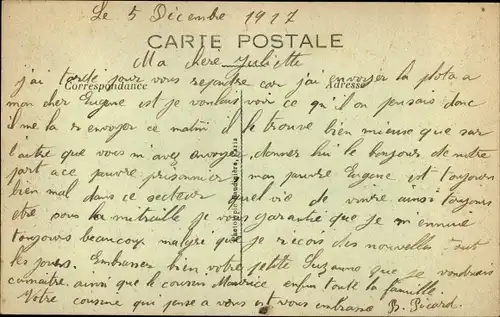 Le 5 Décembre 1917
CARTE POSTALE
Ma chère Juliette
j'ai tardé pour vous repondre car j'ai envoyer la phota a
Correspondance
Adresse
mon cher Eugene et je voulais voir ce qu'il en pensais donc
il me la renvoyer ce matin il le trouve bien mieuse que sur
l'autre que vous m'avez envoyer donnez lui le bonjour de notre
part a ce pauvre prisonnier mon pauvre Eugene est toujours
bien mal dans ce secteur quel vie de vivre ainsi toujours
etre sous la mitraille je vous garantie que je m'ennuie
toujours beaucoup malgré que je recois des nouvelles tout
les jours. Embrassez bien votre petite Suzanne que je voudrais
connaitre ainsi que le cousin Maurice enfin toute la famille.
Votre cousine qui pense a vous et vous embrasse B. Picard.